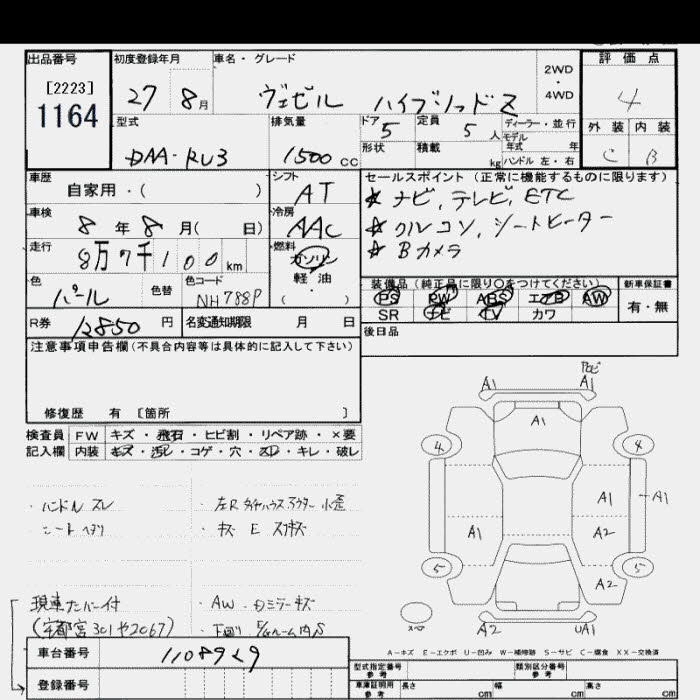 出品番号
[2223]
1164
初度登録年月
27 8月
車名・グレード
ヴェゼル ハイブリッドZ
2WD
・
4WD
評価点
4
型式
DAA-RU3
排気量
1500 cc
ドア
5
定員
5 人
ディーラー・並行
モデル
年式 年
形状
積載
kg
ハンドル 左・右
外装 内装
C B
車歴
自家用・( )
シフト
AT
セールスポイント (正常に機能するものに限ります)
★ ナビ, テレビ, ETC
★ クルコン, シートヒーター
★ Bカメラ
車検
8年8月( 日)
冷房
AAC
走行
8万7千100km
燃料
ガソリン
軽油
・
( )
色
パール
色替
色コード
NH788P
装備品 (純正品に限り○をつけてください)
PS PW ABS エアB AW
SR ナビ TV カワ
新車保証書
有・無
R券 12850 円
名変通知期限 月 日
後日品
注意事項申告欄 (不具合内容等は具体的に記入して下さい)
修復歴 有 [箇所 ]
検査員
記入欄
FW キズ・飛石・ヒビ割・リペア跡・×要
内装 キズ・汚レ・コゲ・穴・スレ・キレ・破レ
・ハンドル スレ
・シート ヘタリ
・キズ E スリキズ
A1 A1
A1
4 4
A1 A1 A1
A2
5 5
A2
A2 UA1
現車ナンバー付
(宇都宮301や2067)
・AW・ドミラーキズ
A-キズ E-エクボ U-凹み W-補修跡 S-サビ C-腐食 XX-交換済
車台番号 1108929
登録番号
型式指定番号
参考
類別区分番号
参考
車庫証明用
参考
長さ cm 幅 cm 高さ cm